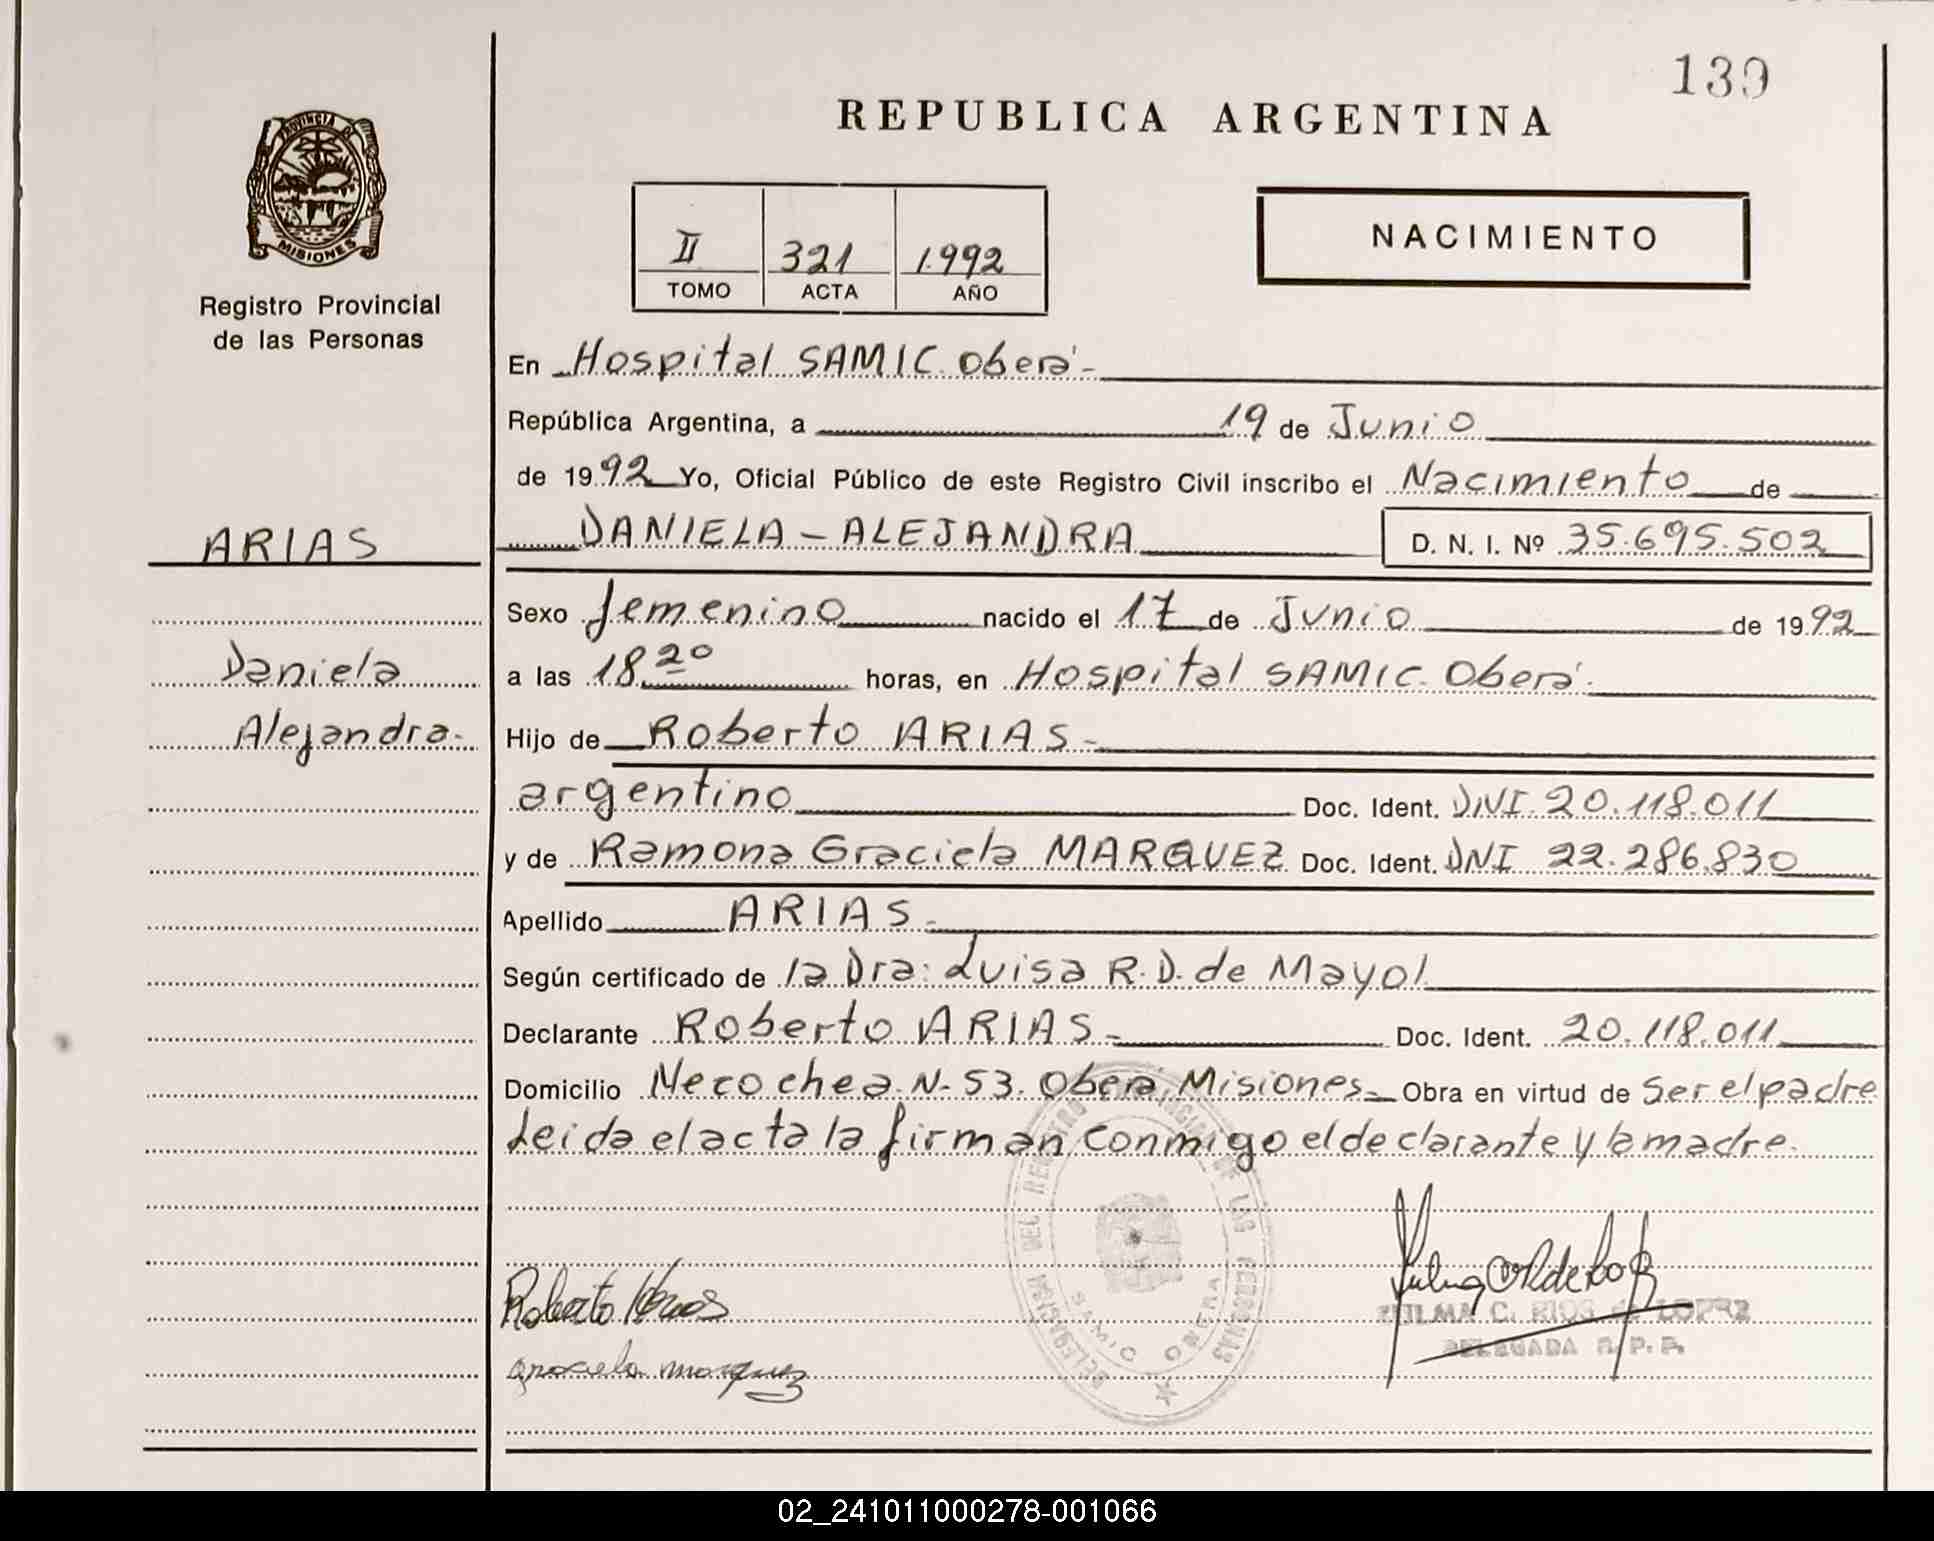 139
REPUBLICA ARGENTINA
PROVINCIA DE
MISIONES
Registro Provincial
de las Personas
II 321 1992
TOMO ACTA AÑO
NACIMIENTO
En Hospital SAMIC. Oberá-
República Argentina, a 19 de Junio
de 1992 Yo, Oficial Público de este Registro Civil inscribo el Nacimiento de
ARIAS
DANIELA - ALEJANDRA D. N. I. Nº 35.695.502
Sexo femenino nacido el 17 de Junio de 1992
Daniela
a las 18.20 horas, en Hospital SAMIC. Oberá.
Alejandra-
Hijo de Roberto ARIAS-
argentino Doc. Ident. DNI. 20.118.011
y de Ramona Graciela MARQUEZ Doc. Ident. DNI 22.286.830
Apellido ARIAS-
Según certificado de la Dra: Luisa R. D. de Mayol
Declarante Roberto ARIAS- Doc. Ident. 20.118.011
Domicilio Necochea. N- 53. Oberá, Misiones- Obra en virtud de Ser el padre
Leida el acta la firman conmigo el declarante y la madre.
DELEGACION DEL REGISTRO PROVINCIAL DE LAS PERSONAS
SAMIC OBERA
Roberto Arias
graciela marquez
ZULMA C. RIOS de LOPEZ
DELEGADA R. P. P.
02_241011000278-001066